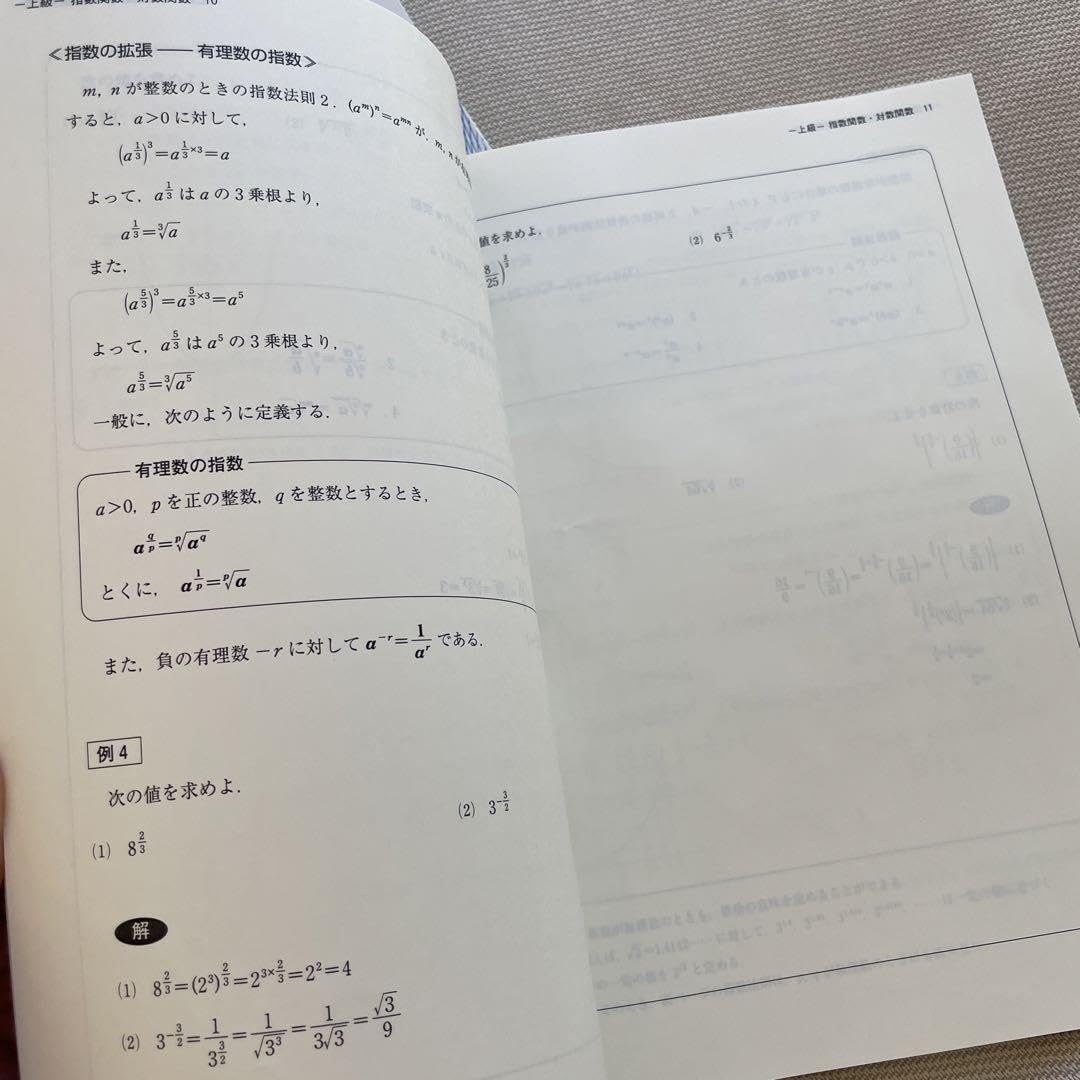 ―上級― 指数関数・対数関数 10
<指数の拡張――有理数の指数>
m, nが整数のときの指数法則2. (a^m)^n=a^{mn} が, m, n
すると, a>0に対して,
(a^{1/3})^3=a^{1/3×3}=a
よって, a^{1/3}はaの3乗根より,
a^{1/3}=∛a
また,
(a^{5/3})^3=a^{5/3×3}=a^5
よって, a^{5/3}はa^5の3乗根より,
a^{5/3}=∛(a^5)
一般に, 次のように定義する.
有理数の指数
a>0, pを正の整数, qを整数とするとき,
a^{q/p}=ᵖ√(a^q)
とくに, a^{1/p}=ᵖ√a
また, 負の有理数−rに対してa^{-r}=1/a^rである.
例4
次の値を求めよ.
(1) 8^{2/3}
(2) 3^{-3/2}
解
(1) 8^{2/3}=(2^3)^{2/3}=2^{3×2/3}=2^2=4
(2) 3^{-3/2}=1/3^{3/2}=1/√(3^3)=1/(3√3)=√3/9
―上級― 指数関数・対数関数 11
値を求めよ.
(2) 6^{-2/3}